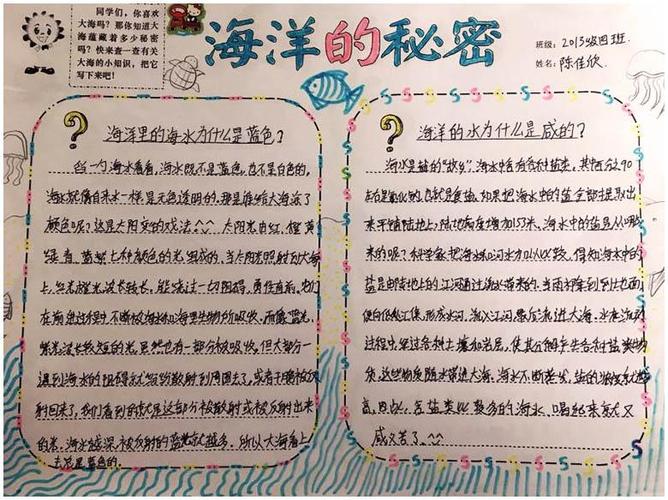 同学们，你喜欢
大海吗？那你知道大
海蕴藏着多少秘密
吗？快来查一查有关
大海的小知识，把它
写下来吧！
海洋的秘密
班级：2013级四班.
姓名：陈佳欣.
海洋里的海水为什么是蓝色？
舀一勺海水看看，海水既不是蓝色，也不是白色的，
海水就像自来水一样是无色透明的。那是谁给大海添了
颜色呢？这是太阳变的戏法^^太阳光由红、橙、黄
绿、青、蓝、紫七种颜色的光组成的，当太阳光照射到大海
上，红光橙光波长较长，能绕过一切阻碍，勇往直前。它们
在前进过程中不断被海水和海里生物所吸收。而像蓝光、
紫光波长较短的光虽然也有一部分被吸收，但大部分一
遇到海水的阻碍就纷纷散射到周围去了，或者干脆被反
射回来了，我们看到的就是这部分被散射或被反射出来
的光。海水越深，被反射的蓝光就越多。所以大海看上
去总是蓝色的。
海洋的水为什么是咸的？
海水是盐的"故乡"，海水中含有各种盐类，其中百分之90
左右是氯化钠，也就是食盐。如果把海水中的盐全部提取出
来平铺陆地上，陆地高度增加153米。海水中的盐是从哪
来的呢？科学家把海水和河水加以比较，得知海水中的
盐是由陆地上的江河通过流水带来的。当雨水降到到地面
便向低处汇集，形成小河，流入江河，最后流进大海。水在流动
过程中，经过各种土壤和岩层，使其分解产生各种盐类物
质，这些物质随水被带进大海。海水不断蒸发，盐的浓度就越
高，因此，含盐类比较多的海水，喝起来就又
咸又苦了。^^